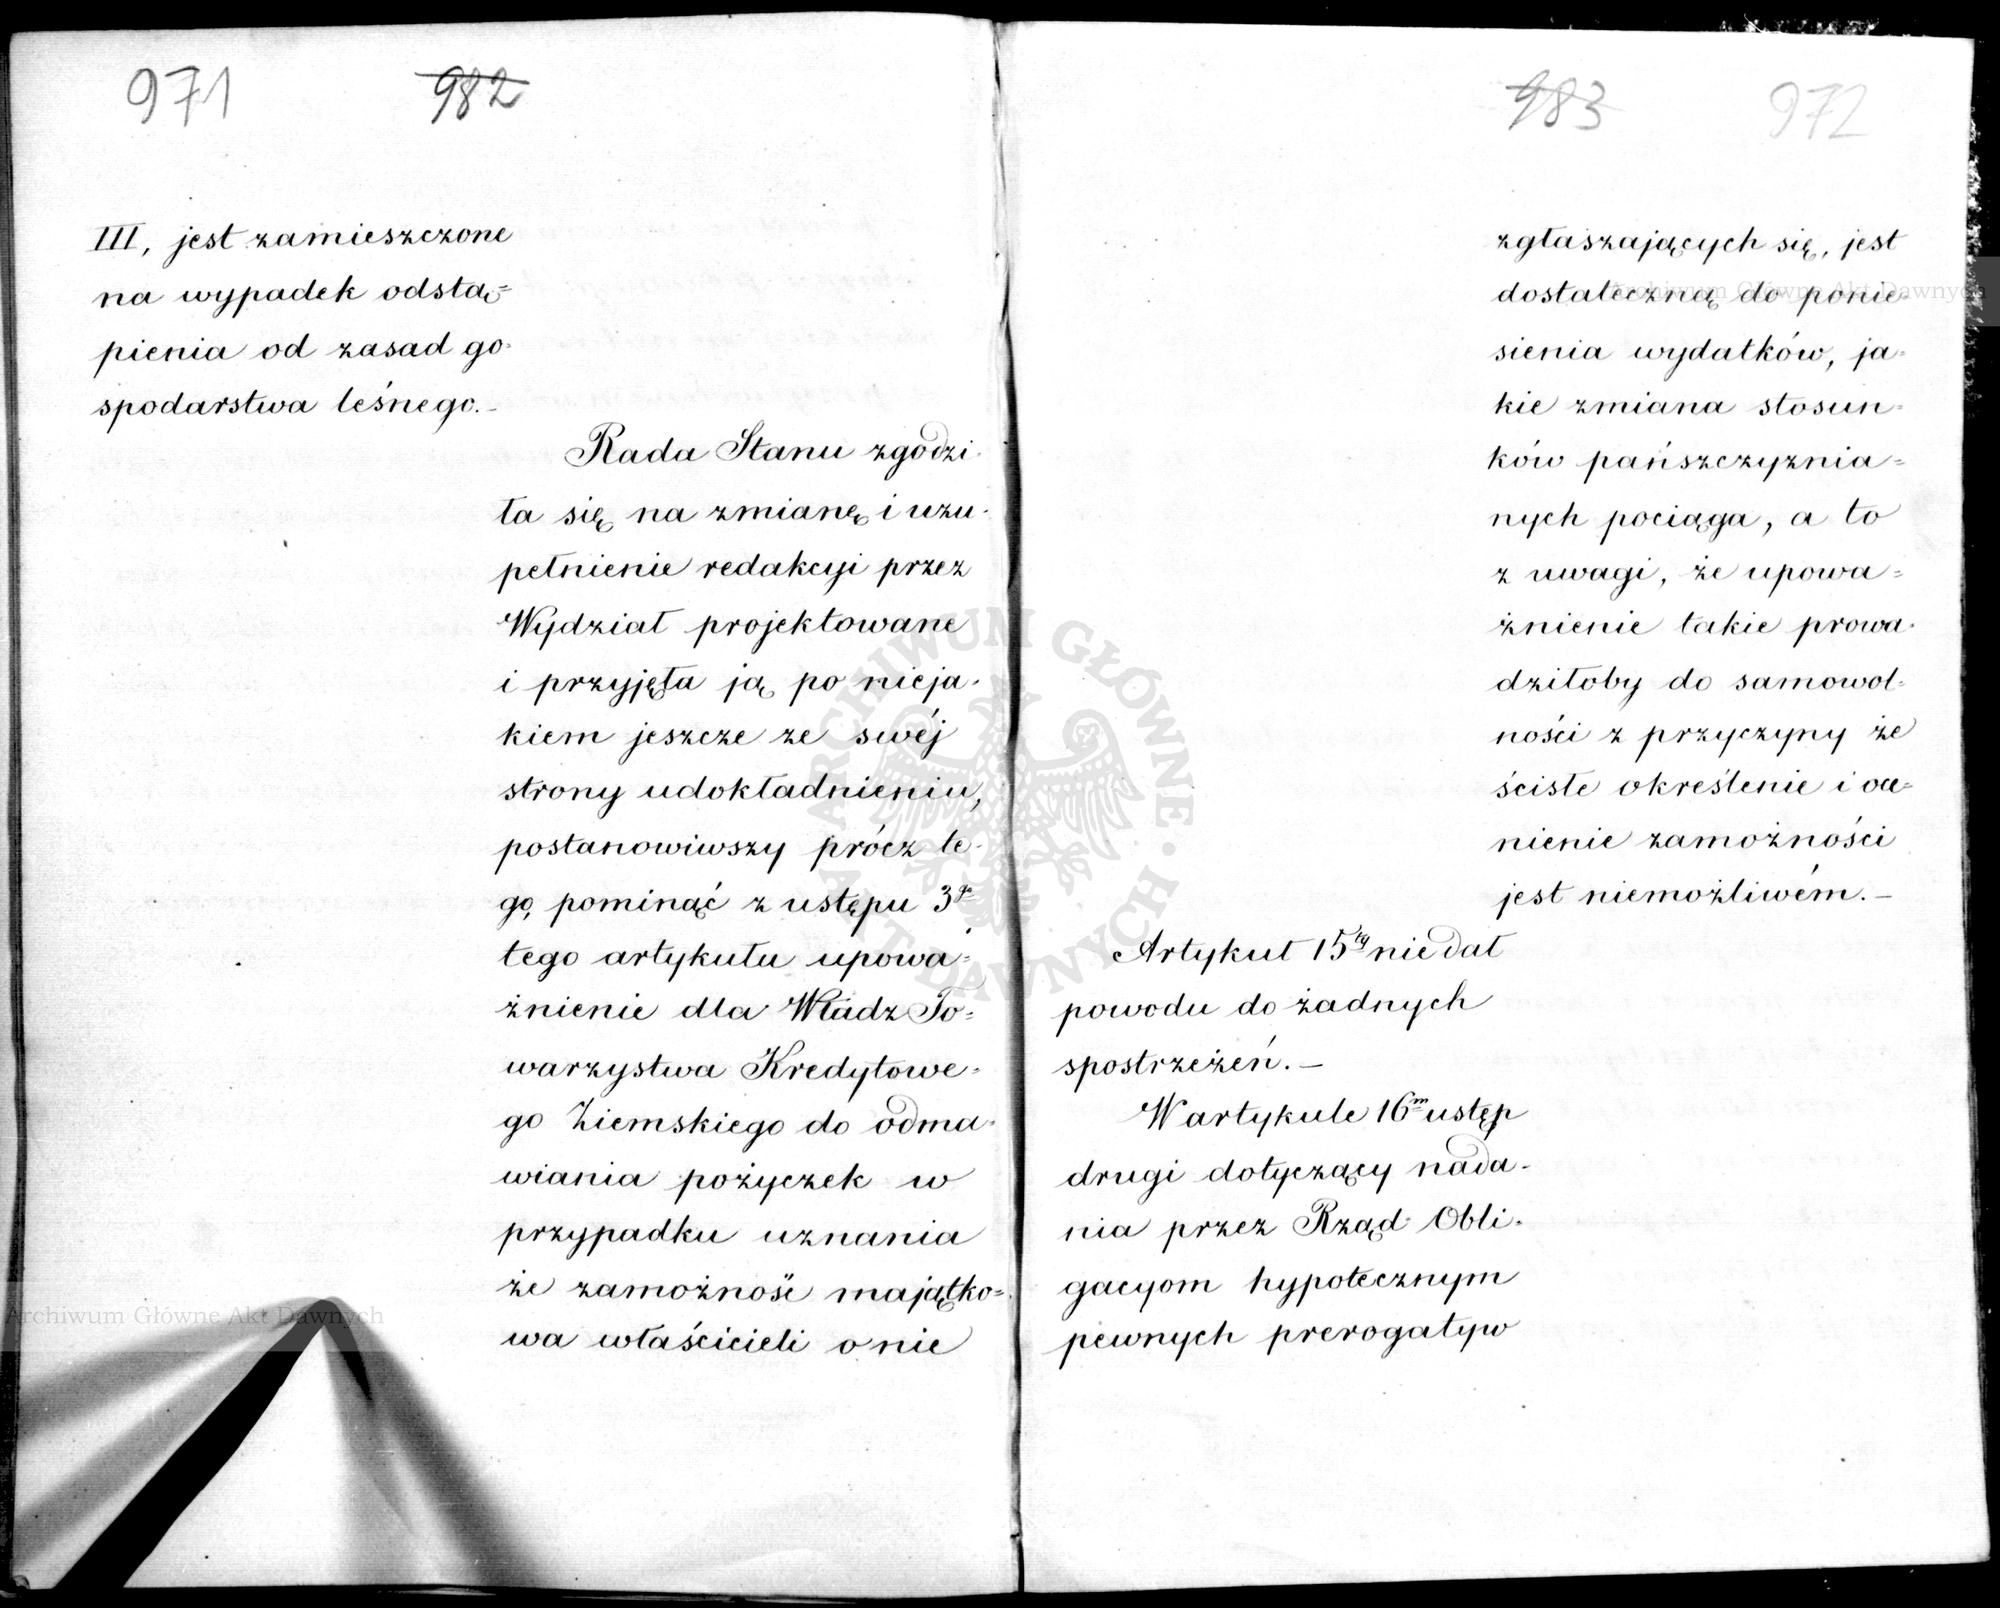 971 982
III, jest zamieszczone
na wypadek odstą=
pienia od zasad go-
spodarstwa leśnego.—
Rada Stanu zgodzi-
ła się na zmianę i uzu-
pełnienie redakcyi przez
Wydział projektowane
i przyjęła ją po nieja-
kiem jeszcze ze swéj
strony udokładnieniu,
postanowiwszy prócz te-
go, pominąć z ustępu 3go
tego artykułu upowa-
żnienie dla Władz To=
warzystwa Kredytowe-
go Ziemskiego do odma-
wiania pożyczek w
przypadku uznania
że zamożność majątko=
wa właścicieli o nie
983 972
zgłaszających się, jest
dostateczną do ponie-
sienia wydatków, ja-
kie zmiana stosun-
ków pańszczyznia=
nych pociąga, a to
z uwagi, że upowa=
żnienie takie prowa-
dziłoby do samowol-
ności z przyczyny że
ściste określenie i oce=
nienie zamożności
jest niemożliwém.—
Artykuł 15ty nie dał
powodu do żadnych
spostrzeżeń.—
W artykule 16m ustęp
drugi dotyczący nada-
nia przez Rząd Obli-
gacyom hypotecznym
pewnych prerogatyw
Archiwum Główne Akt Dawnych
Archiwum Główne Akt Dawnych
ARCHIWUM GŁÓWNE • AKT DAWNYCH •